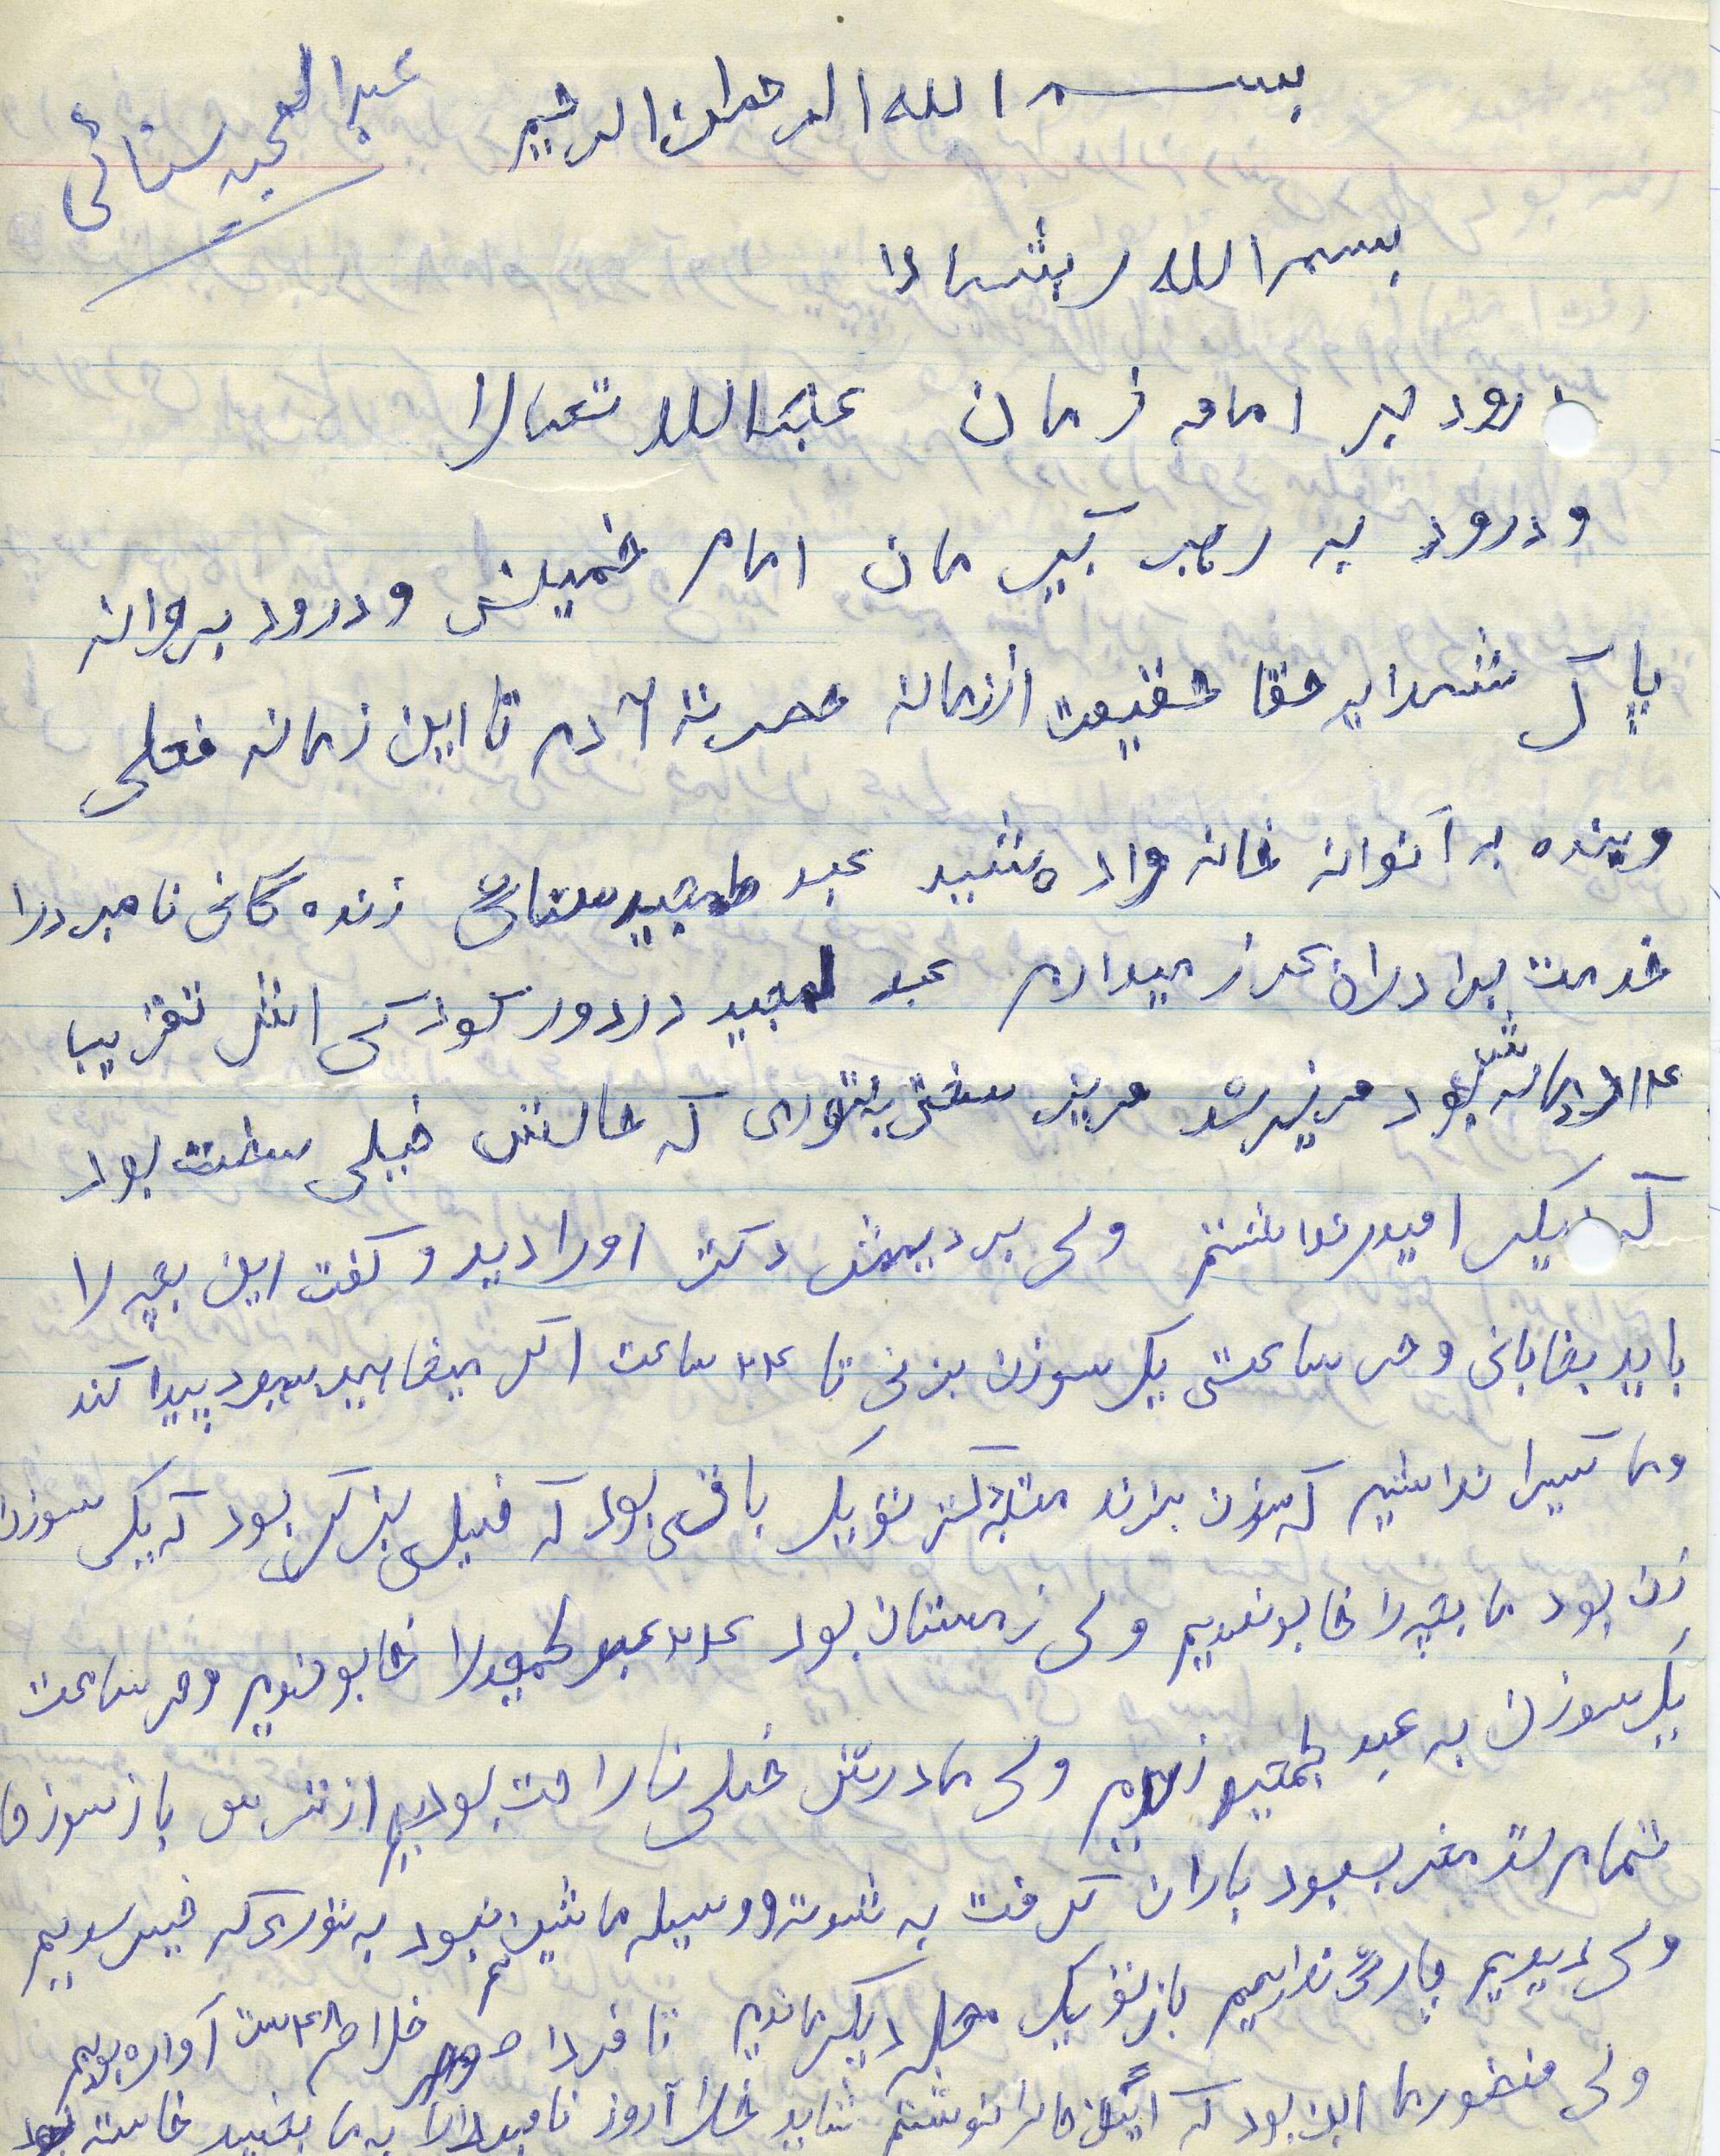 بسم الله الرحمان الرحیم
عبدالمجید ستائی
بسم الله ربشهادا
درود بر امامه زمان عبدالله تعالا
و درود به رهبر کبیر مان امام خمینی و درود بر وانه
پاک شهدایه حقا حقیقت از زمانه حضرته آدم تا این زمانه فعلی
و بنده به آنوانه خانه واده شهید عبد المجید ستائی زنده گانی نامبر درا
خدمت برادران عرز میدارم عبد المجید در دور کودکی اش تقریبا
بود مریز شد مریز سختی به توری که حالش خیلی سخت بود
که دیگر امیدر نداشتم ولی بردیمش دکتر اورا دید و گفت این بچه را
باید بخابانی و هر ساعتی یک سوزن بزنی تا ۲۴ ساعت اگر میخاهید بهبود پیدا کند
وما کسیرا نداشتیم که سوزن بزند دکتر نزدیک باقی بود که خیلی بزرگ بود که یک سوزن
زن بود ما بچه را خابوندیم ولی زمستان بود ۲۴ عبد المجید را خابوندیم و هر ساعت
یک سوزن به عبد المجید زدیم ولی مادرش خیلی ناراحت بودیم از ترس باز سوزن ها
تمام شد مغرب بود باران گرفت به شدت و وسیله ماشین نبود به توری که خیس شدیم
ولی دیدیم چارئی نداریم باز نزدیک محله دیگر ماندیم تا فردا خلاصه ۴۸ ست آواره بودیم
ولی منضور ما این بود که این ها را نوشتم شاید خدا آروز نامبر را به ما بخشید خاسته بود